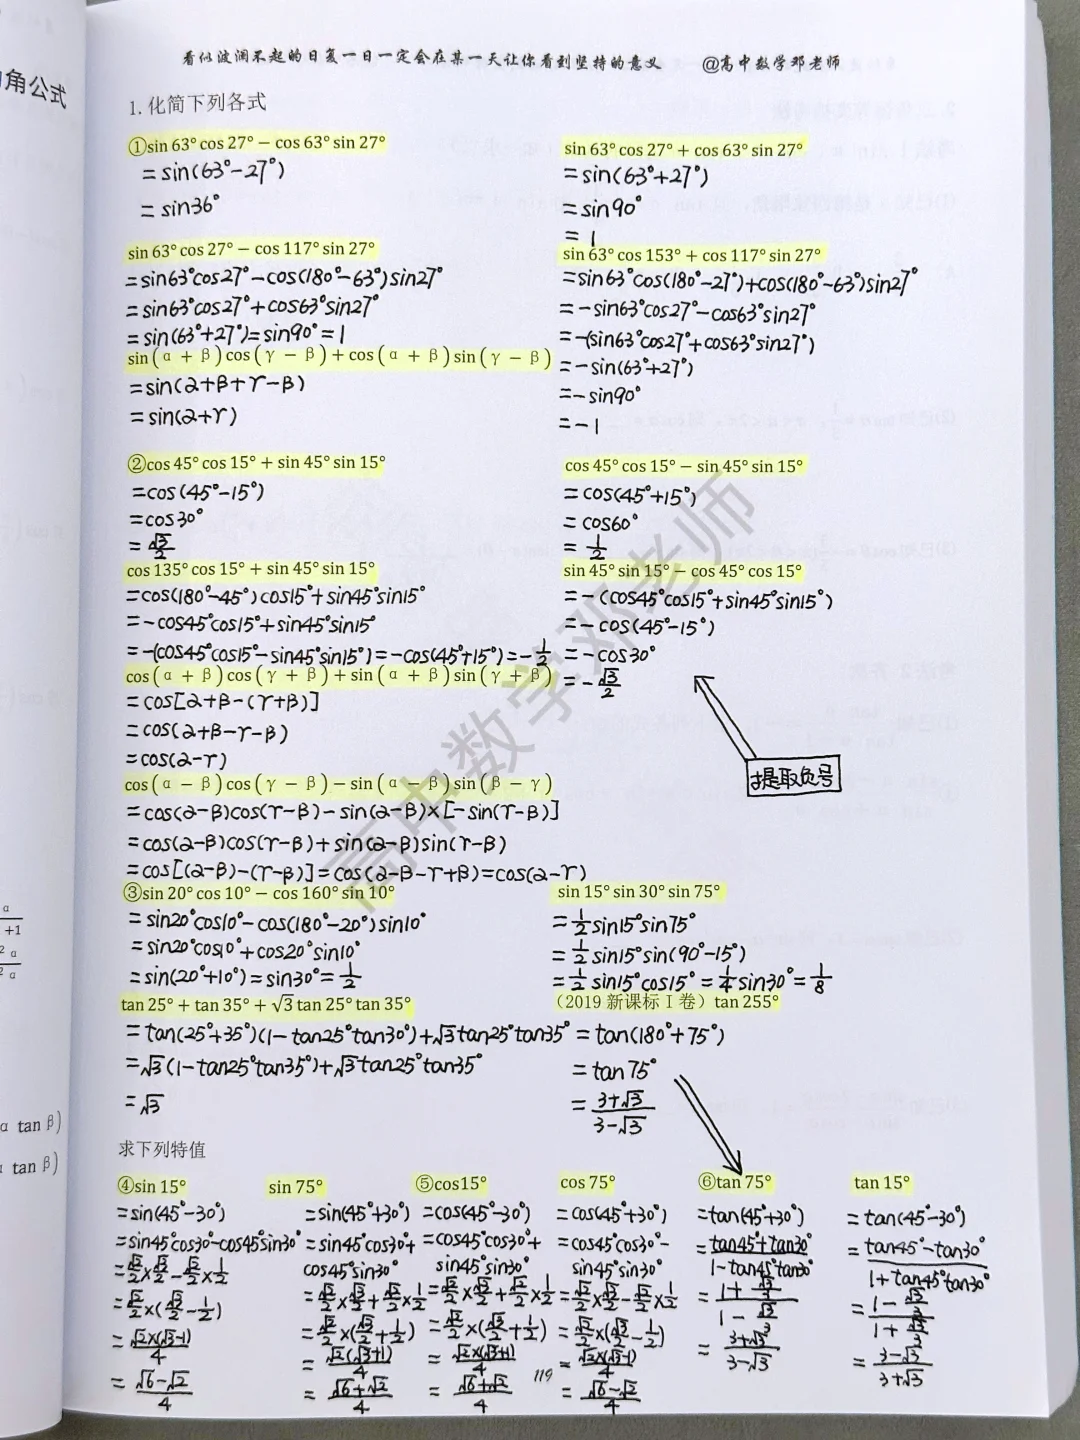 角公式
看似波澜不起的日复一日一定会在某一天让你看到坚持的意义 @高中数学邓老师
1.化简下列各式
①sin 63° cos 27° − cos 63° sin 27°
=sin(63°−27°)
=sin36°
sin 63° cos 27° + cos 63° sin 27°
=sin(63°+27°)
=sin90°
=1
sin 63° cos 27° − cos 117° sin 27°
=sin63°cos27°−cos(180°−63°)sin27°
=sin63°cos27°+cos63°sin27°
=sin(63°+27°)=sin90°=1
sin 63° cos 153° + cos 117° sin 27°
=sin63°cos(180°−27°)+cos(180°−63°)sin27°
=−sin63°cos27°−cos63°sin27°
=−(sin63°cos27°+cos63°sin27°)
=−sin(63°+27°)
=−sin90°
=−1
sin(α+β)cos(γ−β)+cos(α+β)sin(γ−β)
=sin(α+β+γ−β)
=sin(α+γ)
②cos 45° cos 15° + sin 45° sin 15°
=cos(45°−15°)
=cos30°
=√3/2
cos 45° cos 15° − sin 45° sin 15°
=cos(45°+15°)
=cos60°
=1/2
cos 135° cos 15° + sin 45° sin 15°
=cos(180°−45°)cos15°+sin45°sin15°
=−cos45°cos15°+sin45°sin15°
=−(cos45°cos15°−sin45°sin15°)=−cos(45°+15°)=−1/2
sin 45° sin 15° − cos 45° cos 15°
=−(cos45°cos15°+sin45°sin15°)
=−cos(45°−15°)
=−cos30°
=−√3/2
提取负号
cos(α+β)cos(γ+β)+sin(α+β)sin(γ+β)
=cos[α+β−(γ+β)]
=cos(α+β−γ−β)
=cos(α−γ)
cos(α−β)cos(γ−β)−sin(α−β)sin(β−γ)
=cos(α−β)cos(γ−β)−sin(α−β)×[−sin(γ−β)]
=cos(α−β)cos(γ−β)+sin(α−β)sin(γ−β)
=cos[(α−β)−(γ−β)]=cos(α−β−γ+β)=cos(α−γ)
③sin 20° cos 10° − cos 160° sin 10°
=sin20°cos10°−cos(180°−20°)sin10°
=sin20°cos10°+cos20°sin10°
=sin(20°+10°)=sin30°=1/2
sin 15° sin 30° sin 75°
=1/2sin15°sin75°
=1/2sin15°sin(90°−15°)
=1/2sin15°cos15°=1/4sin30°=1/8
tan 25° + tan 35° + √3 tan 25° tan 35°
=tan(25°+35°)(1−tan25°tan30°)+√3tan25°tan35°
=√3(1−tan25°tan35°)+√3tan25°tan35°
=√3
(2019 新课标Ⅰ卷) tan 255°
=tan(180°+75°)
=tan75°
=(3+√3)/(3−√3)
求下列特值
④sin 15°
=sin(45°−30°)
=sin45°cos30°−cos45°sin30°
=√2/2×√3/2−√2/2×1/2
=√2/2×(√3/2−1/2)
=√2×(√3−1)/4
=(√6−√2)/4
sin 75°
=sin(45°+30°)
=sin45°cos30°+
cos45°sin30°
=√2/2×√3/2+√2/2×1/2
=√2/2×(√3/2+1/2)
=√2(√3+1)/4
=(√6+√2)/4
⑤cos15°
=cos(45°−30°)
=cos45°cos30°+
sin45°sin30°
=√2/2×√3/2+√2/2×1/2
=√2/2×(√3/2+1/2)
=√2×(√3+1)/4
=(√6+√2)/4
cos 75°
=cos(45°+30°)
=cos45°cos30°−
sin45°sin30°
=√2/2×√3/2−√2/2×1/2
=√2/2×(√3/2−1/2)
=√2×(√3−1)/4
=(√6−√2)/4
⑥tan 75°
=tan(45°+30°)
=(tan45°+tan30°)/(1−tan45°tan30°)
=(1+√3/3)/(1−√3/3)
=(3+√3)/(3−√3)
tan 15°
=tan(45°−30°)
=(tan45°−tan30°)/(1+tan45°tan30°)
=(1−√3/3)/(1+√3/3)
=(3−√3)/(3+√3)
119
高中数学邓老师
α
+1
2 α
2 α
α tan β)
α tan β)